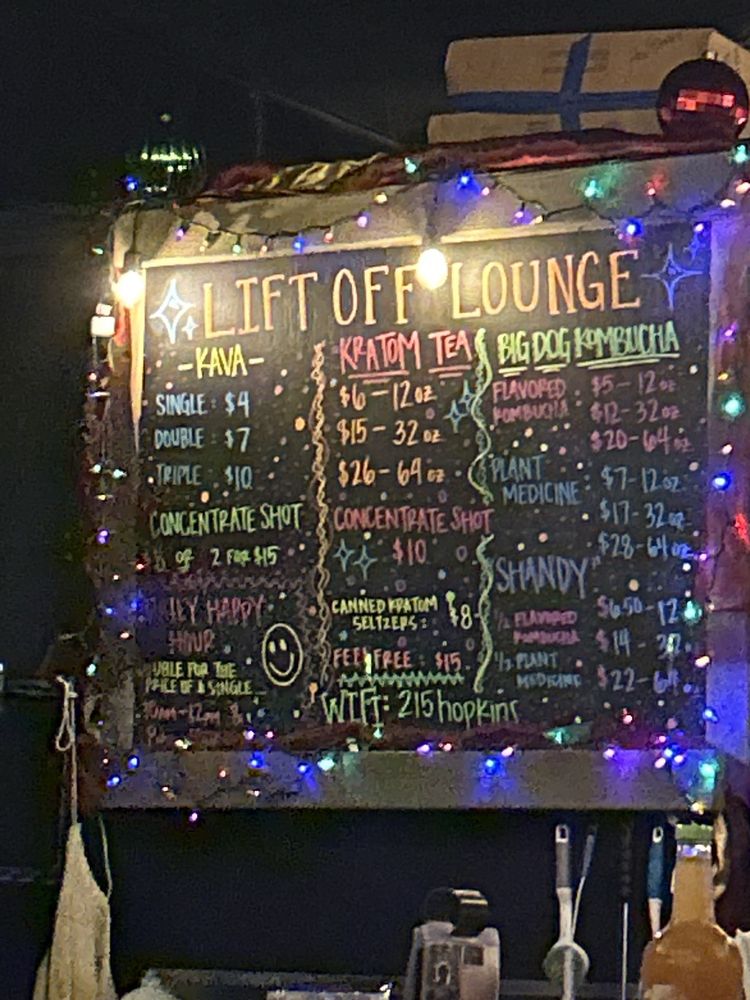 LIFT OFF LOUNGE
-KAVA-
SINGLE: $4
DOUBLE: $7
TRIPLE: $10
CONCENTRATE SHOT
OR 2 FOR $15
HAPPY
HOUR
FOR THE
OF A SINGLE...
KRATOM TEA
$6-12oz
$15-32oz
$26-64oz
CONCENTRATE SHOT
$10
CANNED KRATOM
SELTZERS: $8
FEEL FREE: $15
WIFI: 215hopkins
BIG DOG KOMBUCHA
FLAVORED $5-12oz
KOMBUCHA: $12-32oz
$20-64oz
PLANT $7-12oz
MEDICINE: $17-32oz
$28-64oz
"SHANDY"
1/2 FLAVORED $6.50-12
KOMBUCHA $14-32
1/2 PLANT
MEDICINE $22-64